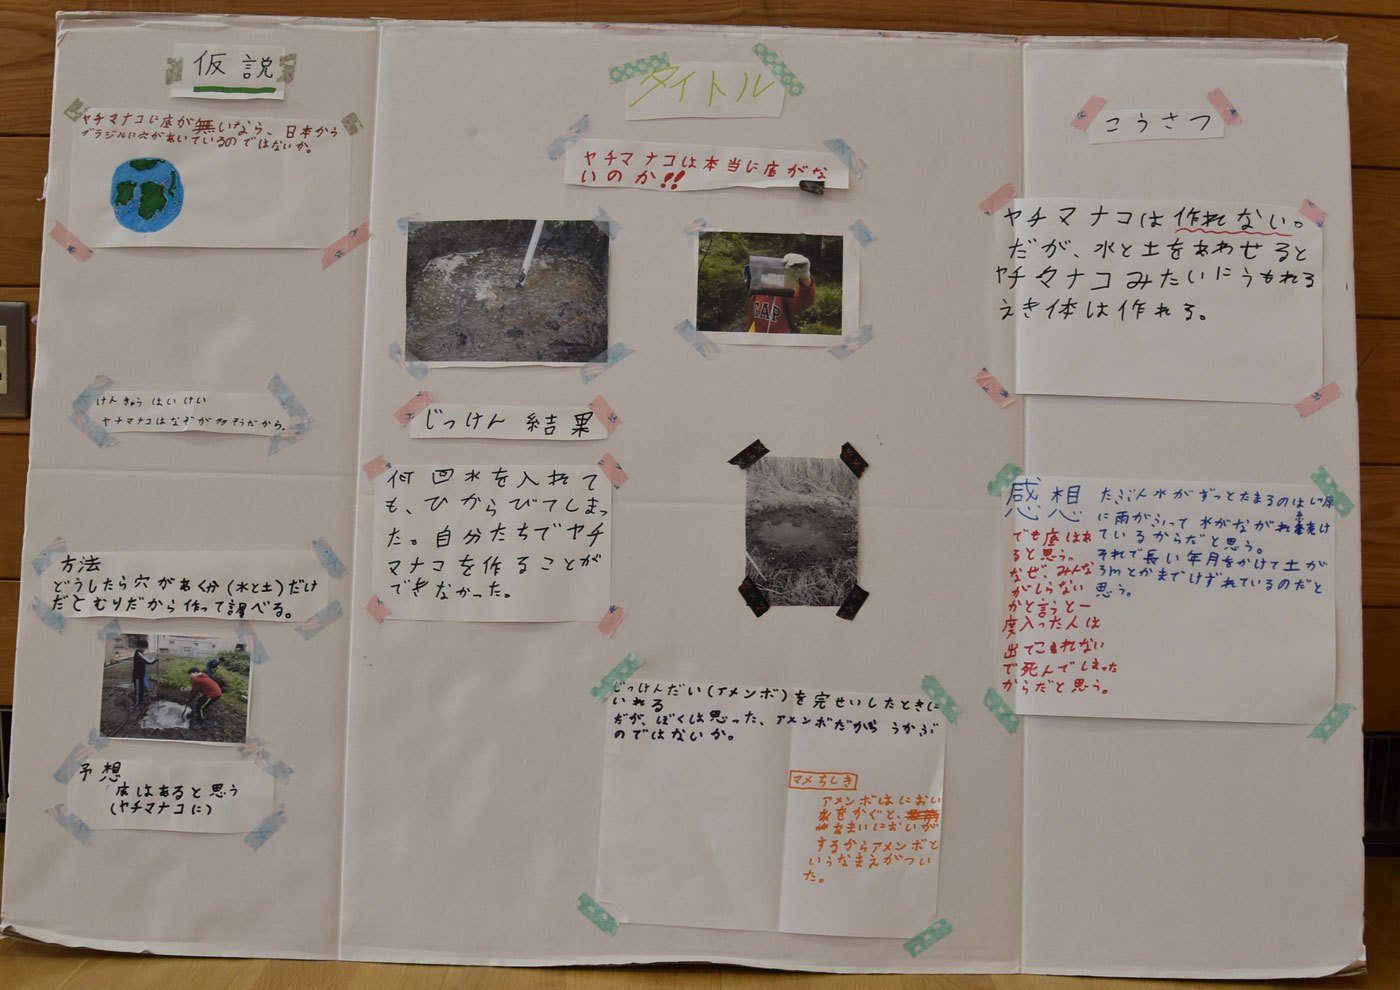 仮説
ヤチマナコに底が無いなら、日本から
ブラジルに穴があいているのではないか。
けんきゅうはいけい
ヤチマナコはなぞが多そうだから。
方法
どうしたら穴があく分(水と土)だけ
だとむりだから作って調べる。
予想
底はあると思う
(ヤチマナコに)
タイトル
ヤチマナコは本当に底がな
いのか!!
GAP
じっけん 結果
何回水を入れて
も、ひからびてしまっ
た。自分たちでヤチ
マナコを作ることが
できなかった。
じっけんだい(アメンボ)を完せいしたときに
いれる
だが、ぼくは思った、アメンボだから うかぶ
のではないか。
マメちしき
アメンボはにおい
をかぐと、
あまいにおいが
するからアメンボと
いうなまえがつい
た。
こうさつ
ヤチマナコは作れない。
だが、水と土をあわせると
ヤチマナコみたいにうもれる
えき体は作れる。
感想
たぶん水がずっとたまるのはしつ原
に雨がふって水がながれ続け
ているからだと思う。
それで長い年月をかけて土が
3mとかまでけずれているのだと
思う。
でも底はあ
ると思う。
なぜ、みんな
がしらない
かと言うと一
度入った人は
出てこれない
で死んでしまった
からだと思う。